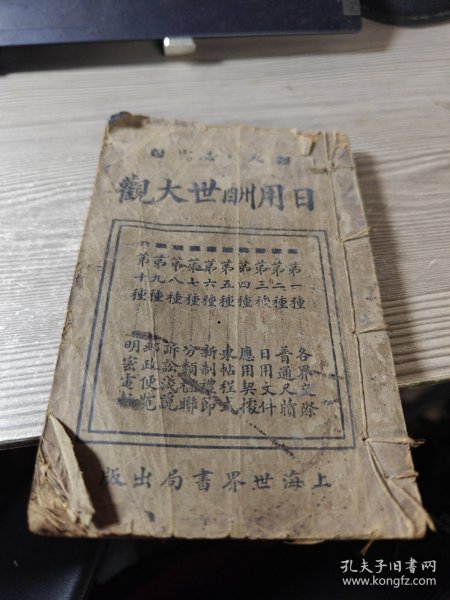 日用酬世大觀
第一種 各界交際
第二種 普通尺牘
第三種 日用文件
第四種 應用契據
第五種 柬帖程式
第六種 新制禮節
第七種 分類楹聯
第八種 訴訟淺說
第九種 郵政便覽
第十種 明密電報
上海世界書局出版
孔夫子旧书网
www.kongfz.com